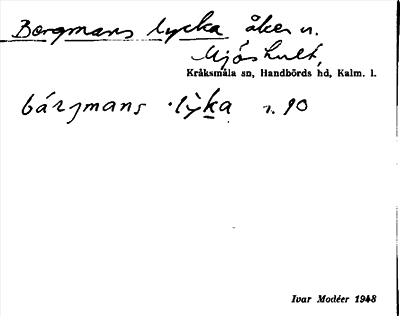 Bergmans lycka åker n.
Mjöshult,
Kråksmåla sn, Handbörds hd, Kalm. l.
bárjmans ·lỳka n. 90
Ivar Modéer 1948